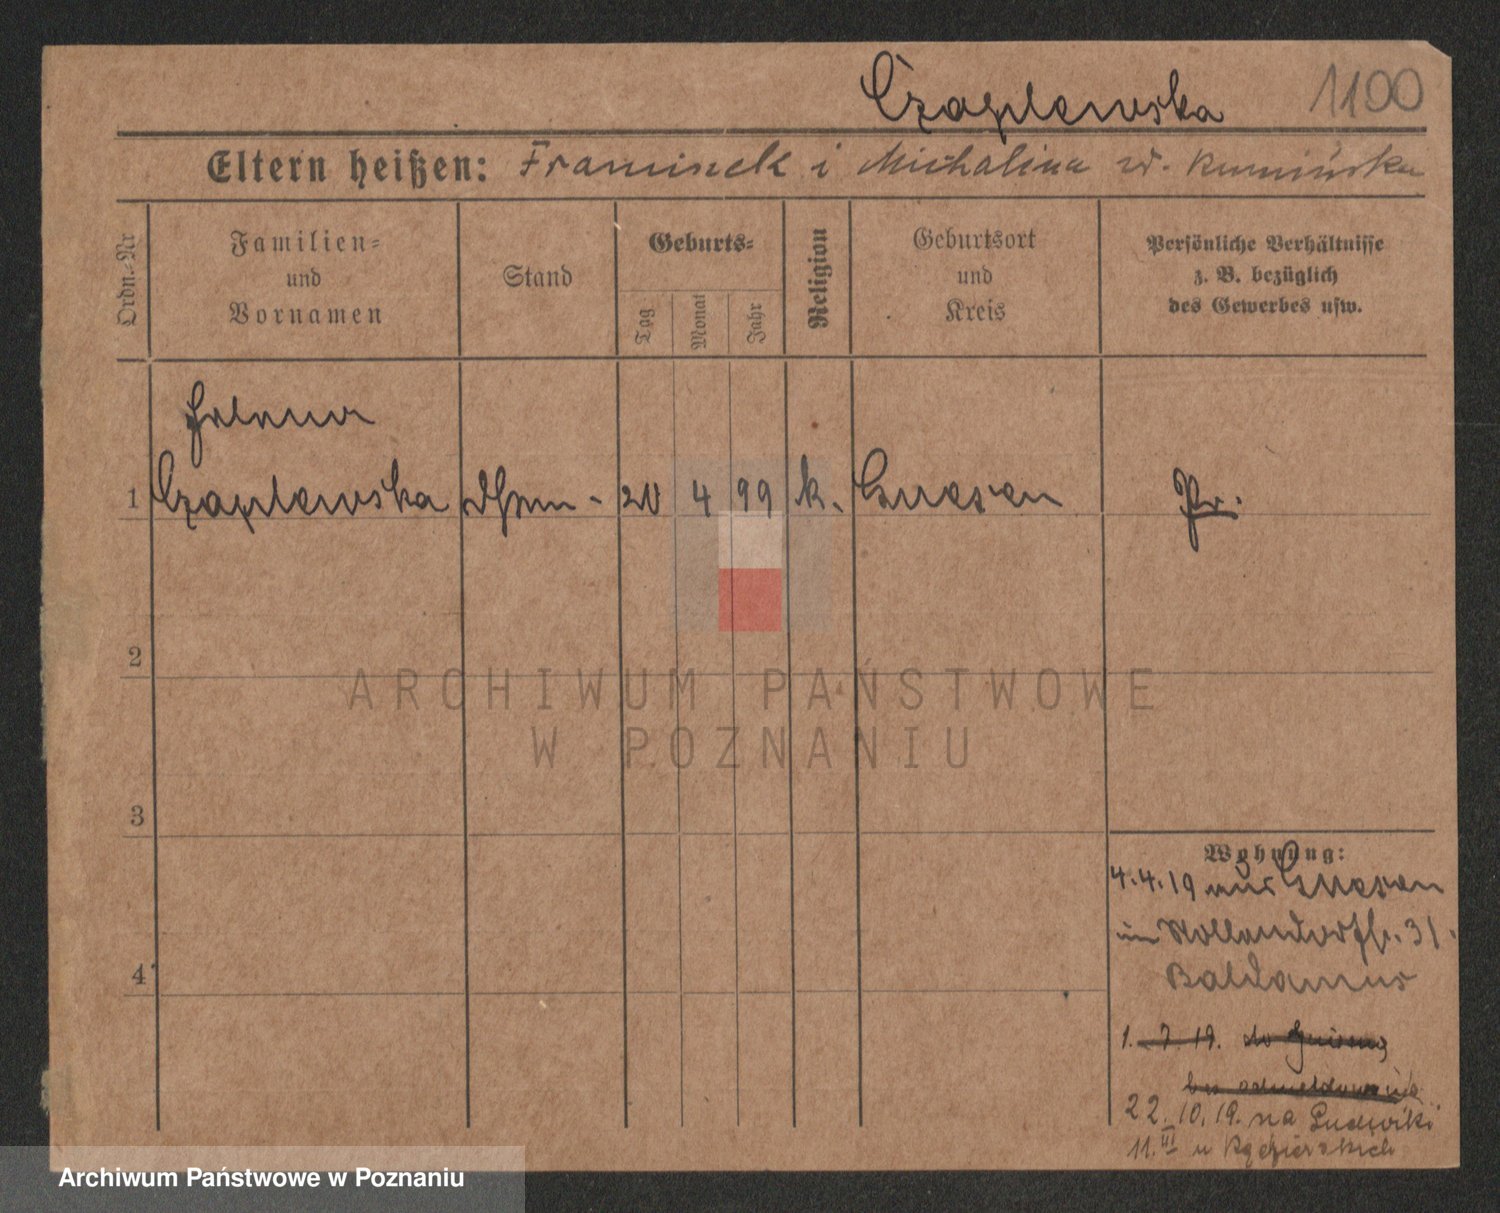 Czaplewska 1100
Eltern heißen: Franciszek i Michalina zd.
Ordn.-Nr
Familien=
und
Vornamen
Stand
Geburts=
Tag
Monat
Jahr
Religion
Geburtsort
und
Kreis
Persönliche Verhältnisse
z. B. bezüglich
des Gewerbes usw.
Helena
1 Czaplewska 20 4 99 k. Gnesen Pr.
2
3
4
Wohnung:
4.4.19 aus Gnesen
in Wollandorfstr. 31.
Baldamus
1. 7. 19. do Gniezna
bez odmeldowania
22. 10. 19. na Ludwiki
11. III u
ARCHIWUM PAŃSTWOWE
W POZNANIU
Archiwum Państwowe w Poznaniu